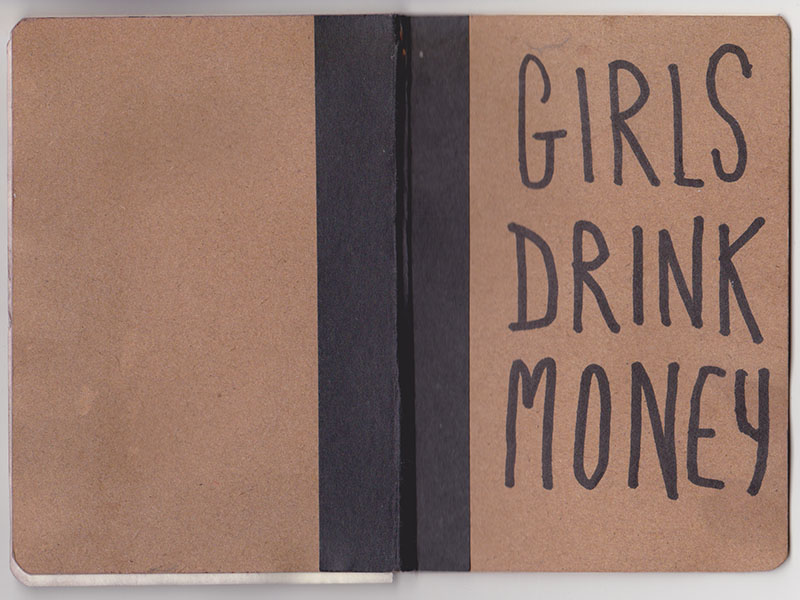 GIRLS
DRINK
MONEY